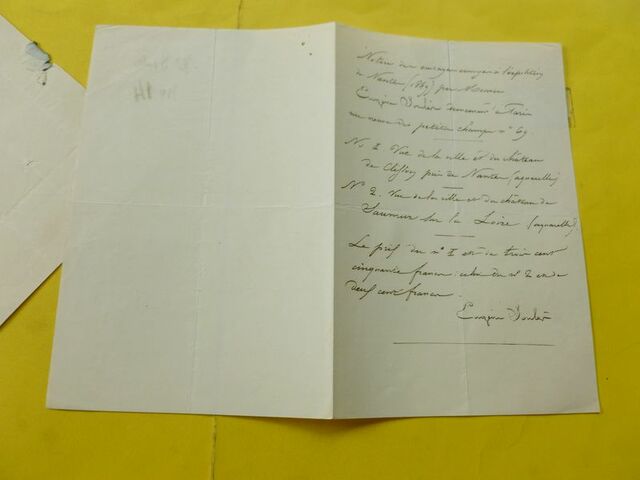 Notice des ouvrages envoyés à l'exposition
de Nantes (1869) par Monsieur
Eugène demeurant à Paris
rue neuve des petits champs n° 69.
N. 1 Vue de la ville et du château
de Clisson près de Nantes (aquarelle)
N° 2. Vue de la ville et du château de
Saumur sur la Loire (aquarelle).
Le prix du n° 1 est de trois cent
cinquante francs : celui du n° 2 est de
deux cent francs.
Eugène
N° 14